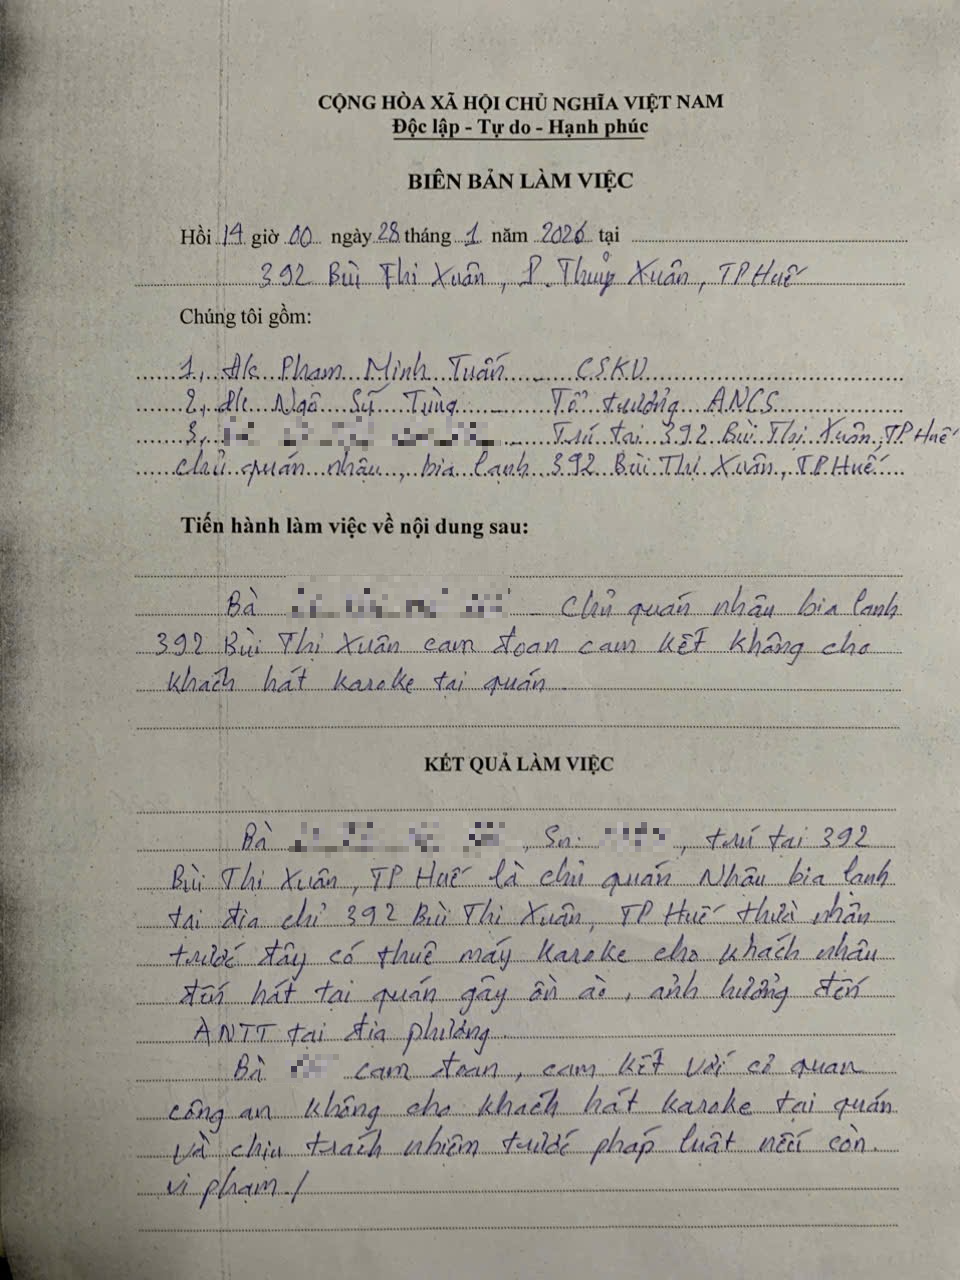 CỘNG HÒA XÃ HỘI CHỦ NGHĨA VIỆT NAM
Độc lập - Tự do - Hạnh phúc
BIÊN BẢN LÀM VIỆC
Hồi 14 giờ 00 ngày 28 tháng 1 năm 2026 tại
392 Bùi Thị Xuân, P. Thuỷ Xuân, TP Huế
Chúng tôi gồm:
1, đ/c Phạm Minh Tuấn - CSKV
2, đ/c Ngô Sỹ Tùng - Tổ trưởng ANCS
3, - Trú tại 392 Bùi Thị Xuân, TP Huế
chủ quán nhậu, bia lạnh 392 Bùi Thị Xuân, TP Huế
Tiến hành làm việc về nội dung sau:
Bà - Chủ quán nhậu bia lạnh
392 Bùi Thị Xuân cam đoan cam kết không cho
khách hát karoke tại quán.
KẾT QUẢ LÀM VIỆC
Bà , Sn: , trú tại 392
Bùi Thị Xuân, TP Huế là chủ quán Nhậu bia lạnh
tại địa chỉ 392 Bùi Thị Xuân, TP Huế thừa nhận
trước đây có thuê máy karoke cho khách nhậu
đến hát tại quán gây ồn ào, ảnh hưởng đến
ANTT tại địa phương.
Bà cam đoan, cam kết với cơ quan
công an không cho khách hát karoke tại quán
và chịu trách nhiệm trước pháp luật nếu còn
vi phạm./